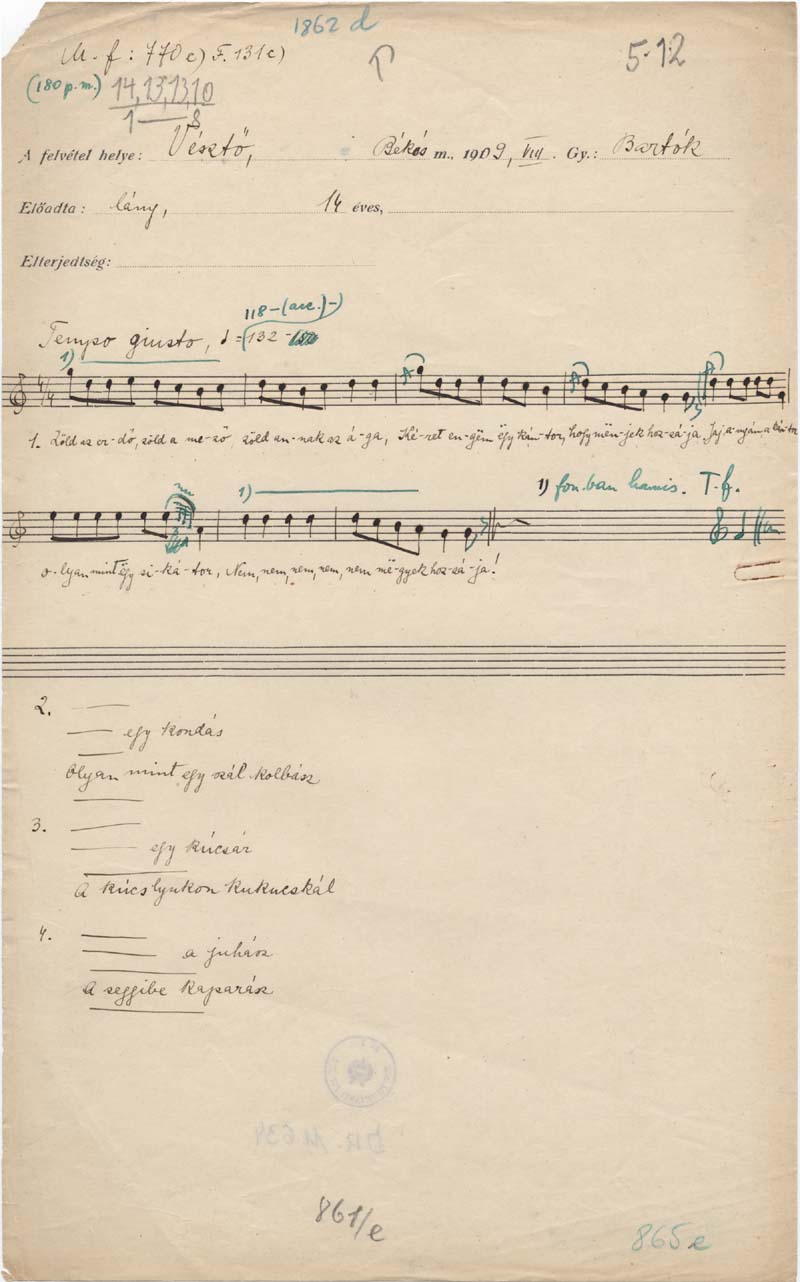 1862 d
M. f: 770c) F. 131c)
5-12
(180 p.m.)
14, 13, 13, 10
1 — 8
A felvétel helye: Vésztő, Békés m., 1909, VIII. Gy.: Bartók
Előadta: lány, 14 éves,
Elterjedtség:
118-(acc.)-)
Tempo giusto, ♩ = 132 -
1)
4/4
1. Zöld az er-dő, zöld a me-ző zöld an-nak az á-ga, Ké-ret en-gëm ëgy kán-tor, hogy mën-jek hoz-zá-ja. Jaj a-nyám, a kán-tor
1) 1) fon.ban hamis. T.f.
o-lyan mint ëgy si-ká-tor, Nem, nem, nem, nem, nem më-gyek hoz-zá-ja!
2.
egy kondás
Olyan mint egy szál kolbász
3.
egy kúcsár
A kúcslyukon kukucskál
4.
a juhász
A seggibe kaparász
861/e
865 e